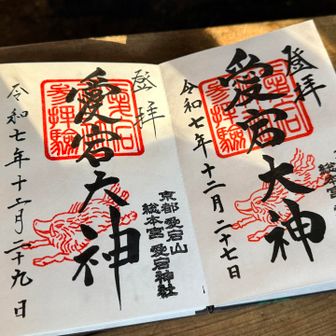 登拝
愛宕大神
令和七年十二月二十七日
登拝
京都愛宕山
総本宮 愛宕神社
愛宕大神
令和七年十二月二十九日